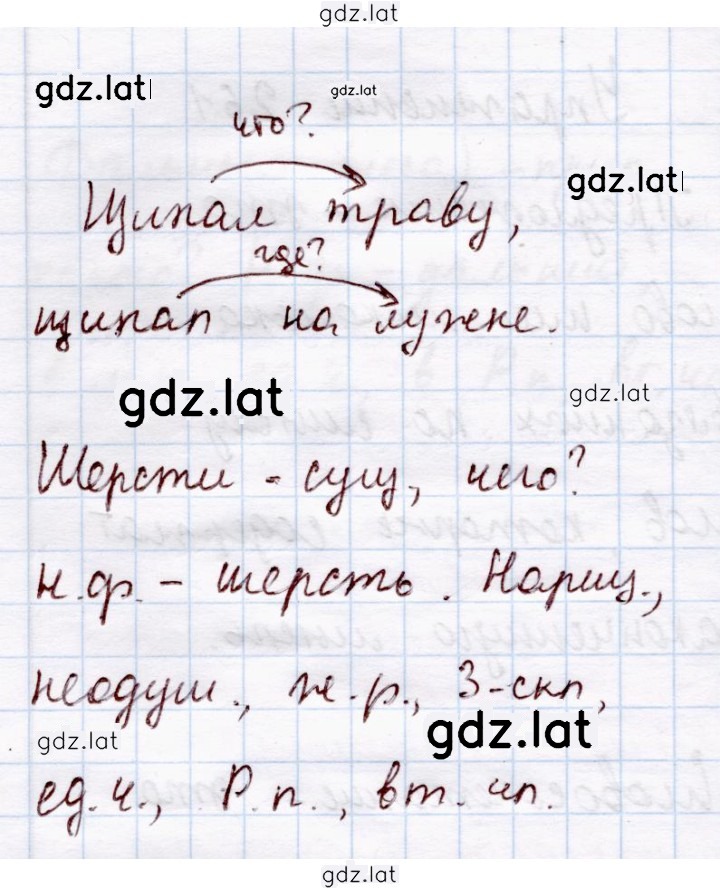 gdz.lat
gdz.lat
gdz.lat
что?
gdz.lat
Щипал траву,
где?
щипал на лужке.
gdz.lat
gdz.lat
Шерсти - сущ, чего?
н.ф. - шерсть. Нариц.,
неодуш., ж.р., 3-скл,
gdz.lat
gdz.lat
ед.ч., Р.п., вт. чл.
gdz.lat